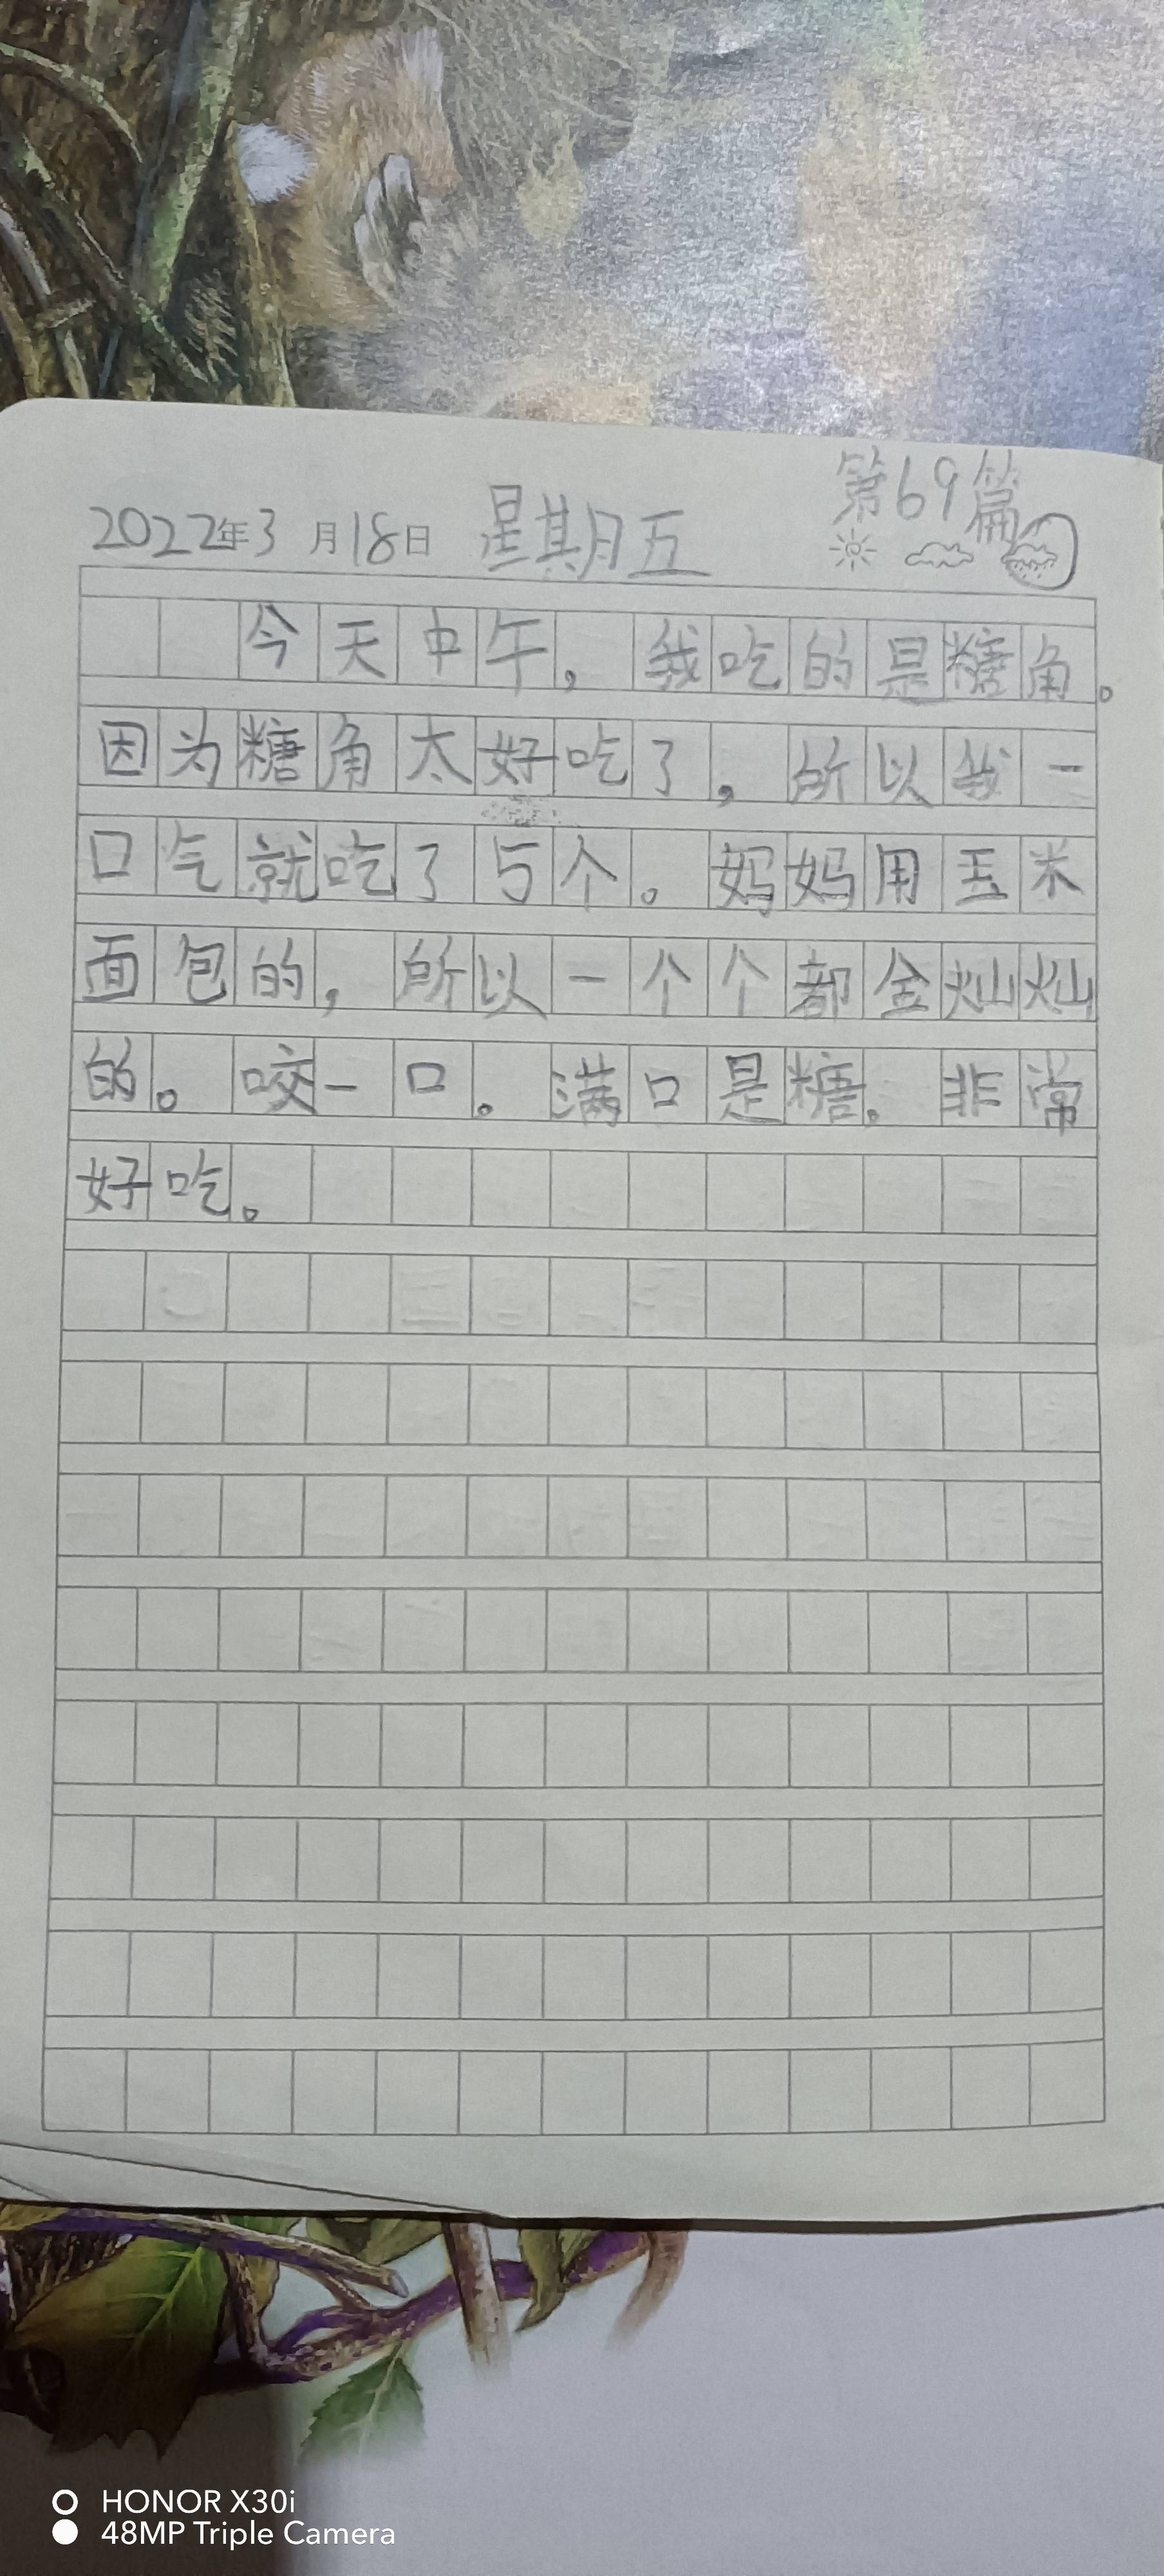 第69篇
2022年3月18日 星期五
今天中午，我吃的是糖角。
因为糖角太好吃了，所以我一
口气就吃了5个。妈妈用玉米
面包的，所以一个个都金灿灿
的。咬一口。满口是糖。非常
好吃。
HONOR X30i
48MP Triple Camera